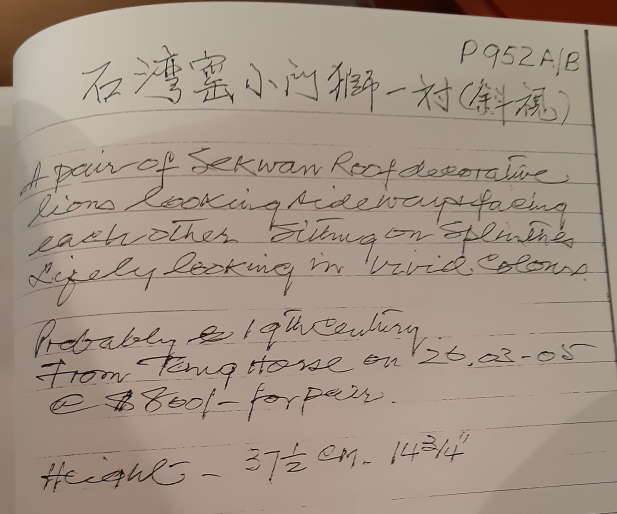 P952A/B
石湾窑小门獅一対(斜視)
A pair of Sekwan Roof decorative
lions looking sideways facing
each other Sitting on Splinthes
Lifely looking in vivid Colours.
Probably 19th Century
From Tang Horse on 26.03-05
@ $800/- for pair.
Height - 37½ cm - 14¾"